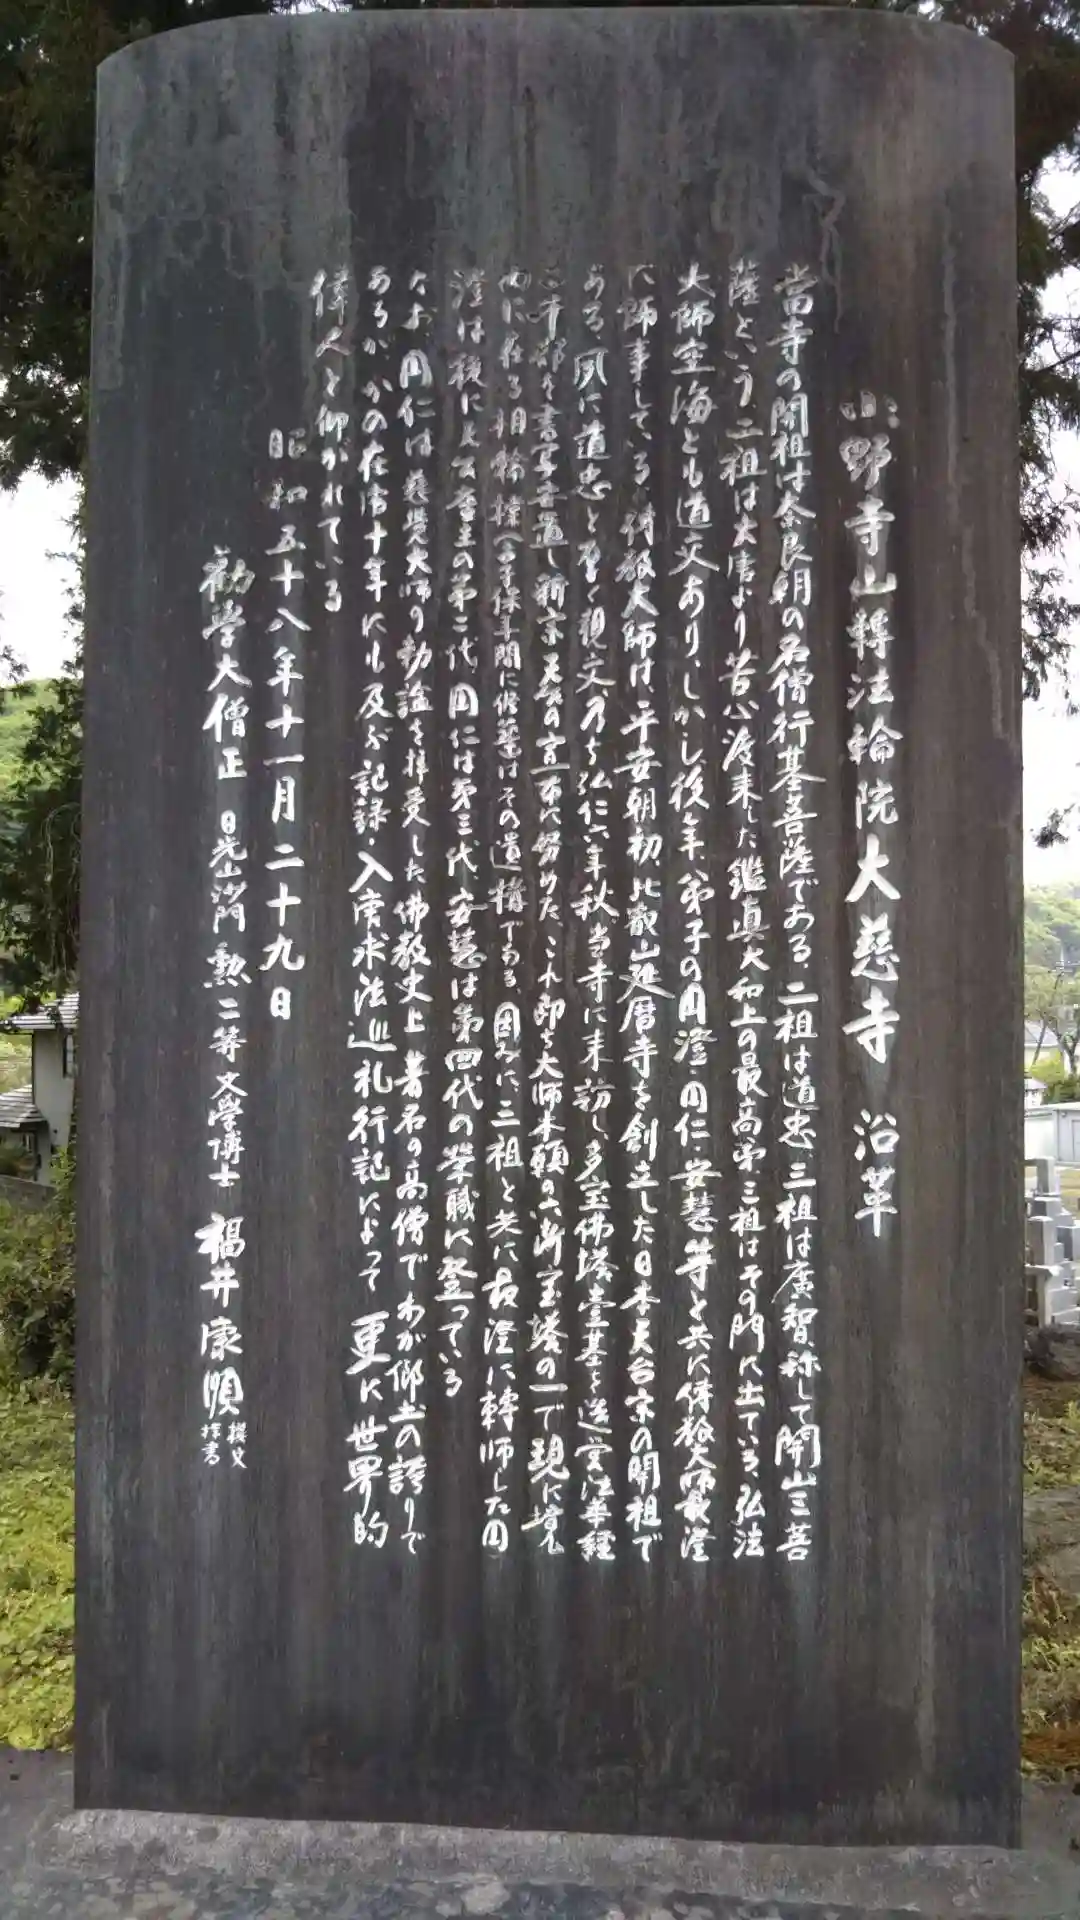 小野寺山轉法輪院大慈寺 沿革
當寺の開祖は奈良朝の名僧行基菩薩である、二祖は道忠、三祖は廣智、称して開山三菩
薩という、二祖は大唐より苦心渡来した鑑真大和上の最高弟、三祖はその門に出ている、弘法
大師空海とも道交あり、しかし後年、弟子の円澄・円仁・安慧等と共に傳教大師最澄
に師事している、傳教大師は、平安朝初、比叡山延暦寺を創立した日本天台宗の開祖で
ある、夙に道忠と 親交、乃ち弘仁六年秋当寺に来訪し、多宝佛塔壹基を造営法華経
千部を書写安置し新宗 の宣布に努めた、これ即ち大師本願の六所宝塔の一で現に境
内に在る相輪橖(享保年間に修築)はその遺構である、因みに、三祖と共に最澄に轉師した円
澄は後に天台座主の第二代、円仁は第三代、安慧は第四代の栄職に登っている
なお、円仁は慈覺大師の勅諡を拝受した佛教史上著名の高僧でわが郷土の誇りで
あるが、かの在唐十年にも及ぶ記録、入唐求法巡礼行記によって 更に世界的
偉人と仰がれている
昭和五十八年十一月二十九日
勧学大僧正 日光山沙門 勲二等 文學博士 福井康順 撰文 拝書